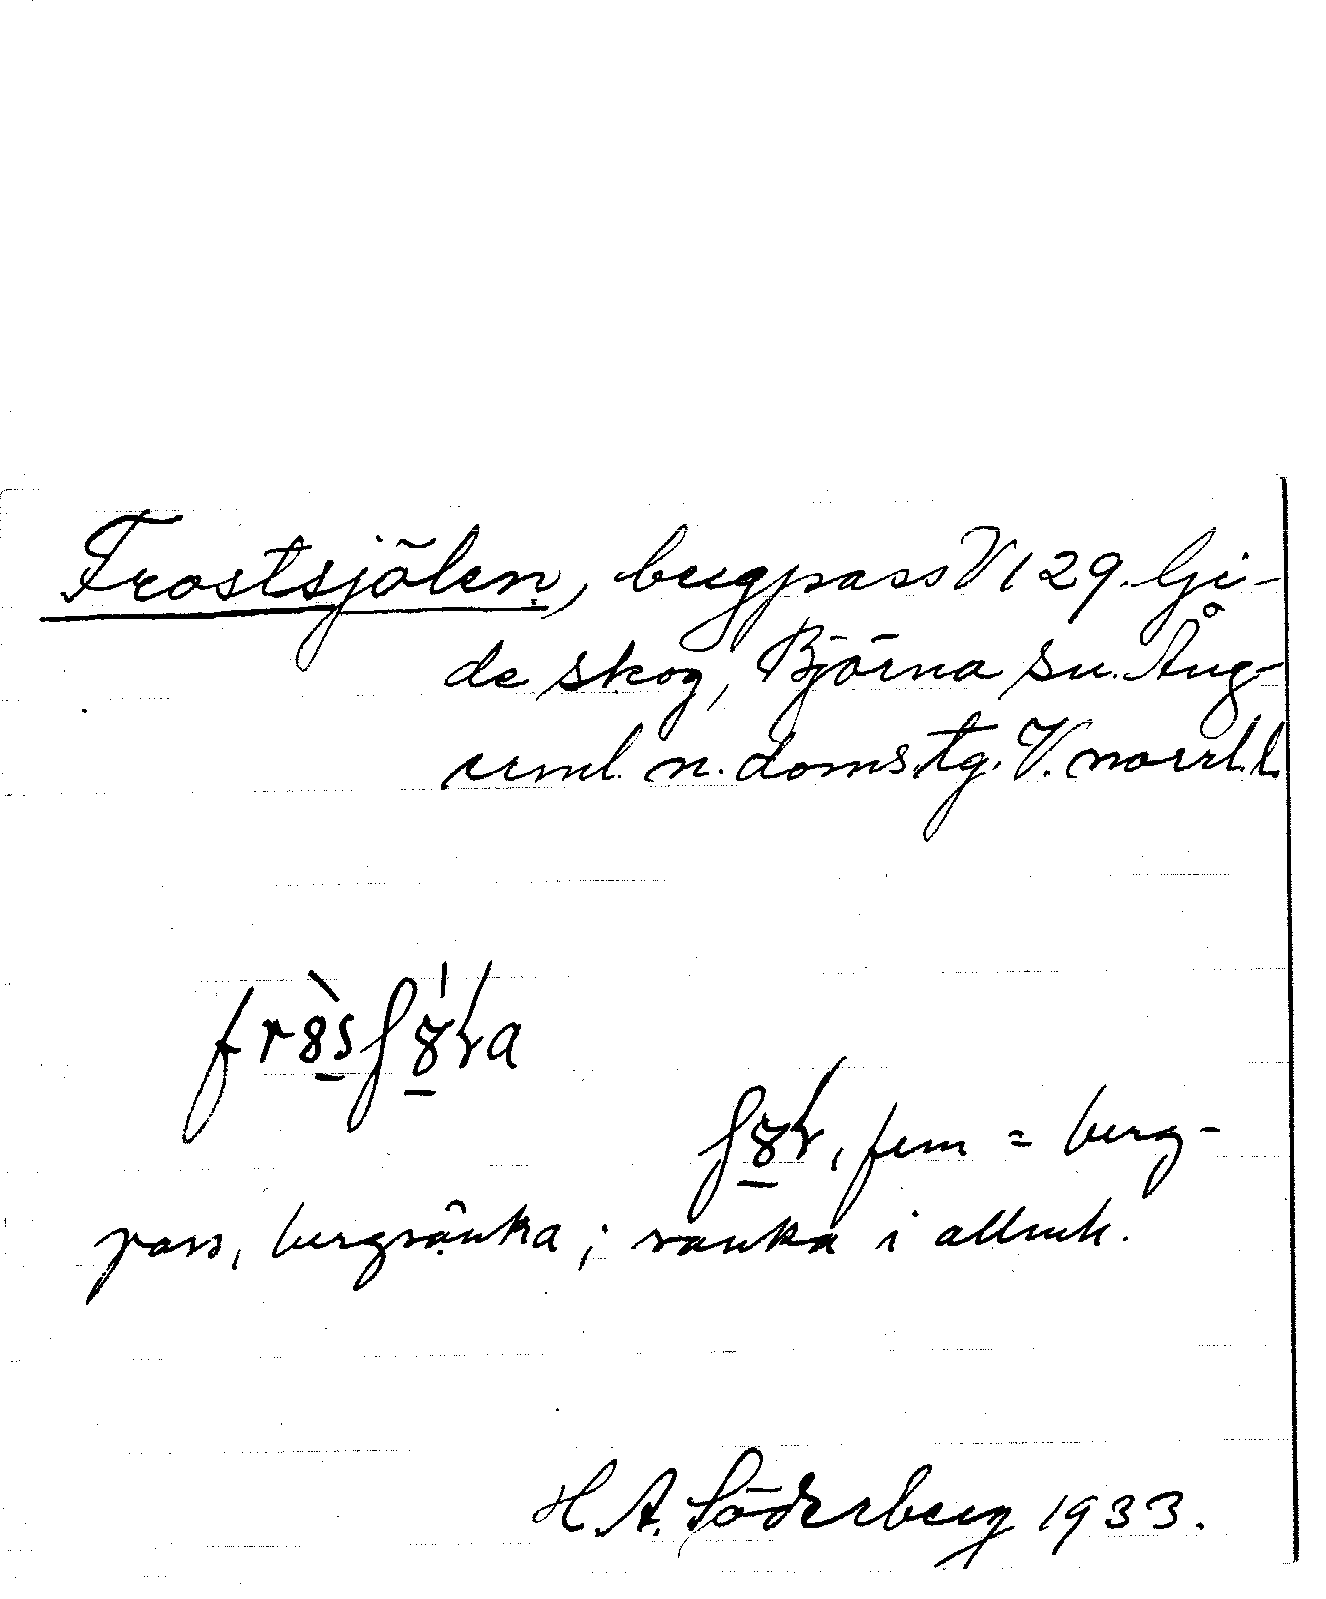 Frostsjölen, bergpass V 129. Gi-
de skog, Björna sn. Ång-
erml. n. doms.tg. V. norrl.l.
frȣ̀sʃȣ́ɽa
ʃȣɽ, fem = berg-
pass, bergsänka; sänka i allmh.
H. A. Söderberg 1933.